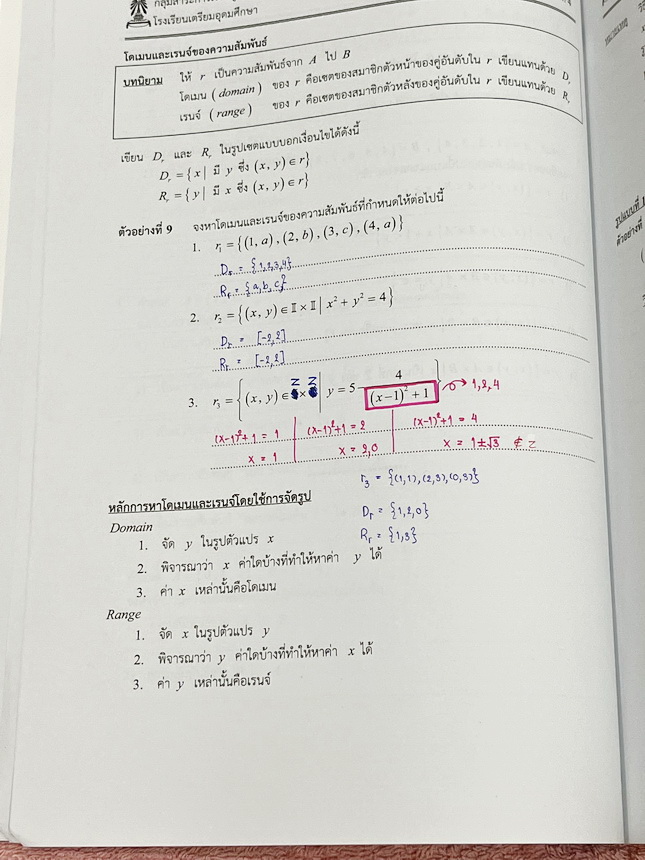 โรงเรียนเตรียมอุดมศึกษา
โดเมนและเรนจ์ของความสัมพันธ์
บทนิยาม ให้ r เป็นความสัมพันธ์จาก A ไป B
โดเมน (domain) ของ r คือเซตของสมาชิกตัวหน้าของคู่อันดับใน r เขียนแทนด้วย Dᵣ
เรนจ์ (range) ของ r คือเซตของสมาชิกตัวหลังของคู่อันดับใน r เขียนแทนด้วย Rᵣ
เขียน Dᵣ และ Rᵣ ในรูปเซตแบบบอกเงื่อนไขได้ดังนี้
Dᵣ = {x | มี y ซึ่ง (x, y) ∈ r}
Rᵣ = {y | มี x ซึ่ง (x, y) ∈ r}
ตัวอย่างที่ 9 จงหาโดเมนและเรนจ์ของความสัมพันธ์ที่กำหนดให้ต่อไปนี้
1. r₁ = {(1, a), (2, b), (3, c), (4, a)}
Dᵣ = {1,2,3,4}
Rᵣ = {a,b,c}
2. r₂ = {(x, y) ∈ I × I | x² + y² = 4}
Dᵣ = [-2,2]
Rᵣ = [-2,2]
3. r₃ = {(x, y) ∈ Z × Z | y = 5 - 4/((x-1)² + 1)} → 1,2,4
(x-1)²+1 = 1 (x-1)²+1 = 2 (x-1)²+1 = 4
x = 1 x = 2,0 x = 1±√3 ∉ Z
r₃ = {(1,1),(2,3),(0,3)}
หลักการหาโดเมนและเรนจ์โดยใช้การจัดรูป
Dᵣ = {1,2,0}
Domain
Rᵣ = {1,3}
1. จัด y ในรูปตัวแปร x
2. พิจารณาว่า x ค่าใดบ้างที่ทำให้หาค่า y ได้
3. ค่า x เหล่านั้นคือโดเมน
Range
1. จัด x ในรูปตัวแปร y
2. พิจารณาว่า y ค่าใดบ้างที่ทำให้หาค่า x ได้
3. ค่า y เหล่านั้นคือเรนจ์